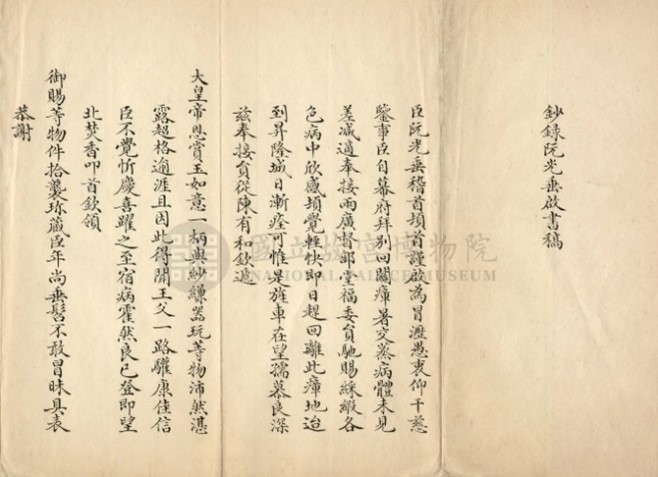 鈔錄阮光垂啟書稿
臣阮光垂稽首頓首謹啟為冒瀝愚衷仰干慈
鑒事臣自幕府拜別回關瘴暑交蒸病體未見
差減適奉接兩廣督部堂福委員馳賜綵緞各
色病中欣感頓覺輕快即日起回離此瘴地迨
到昇隆城日漸痊可惟是旌車在望孺慕良深
茲奉接貟從陳有和欽遞
大皇帝恩賞玉如意一柄與紗縑器玩等物沛然湛
露超格逾涯且因此得聞王父一路驩康佳信
臣不覺忻慶喜躍之至宿病霍然良已登即望
北焚香叩首欽領
御賜等物件拾襲珎藏臣年尚垂髫不敢冒昧具表
恭謝
國立故宮博物院
NATIONAL PALACE MUSEUM